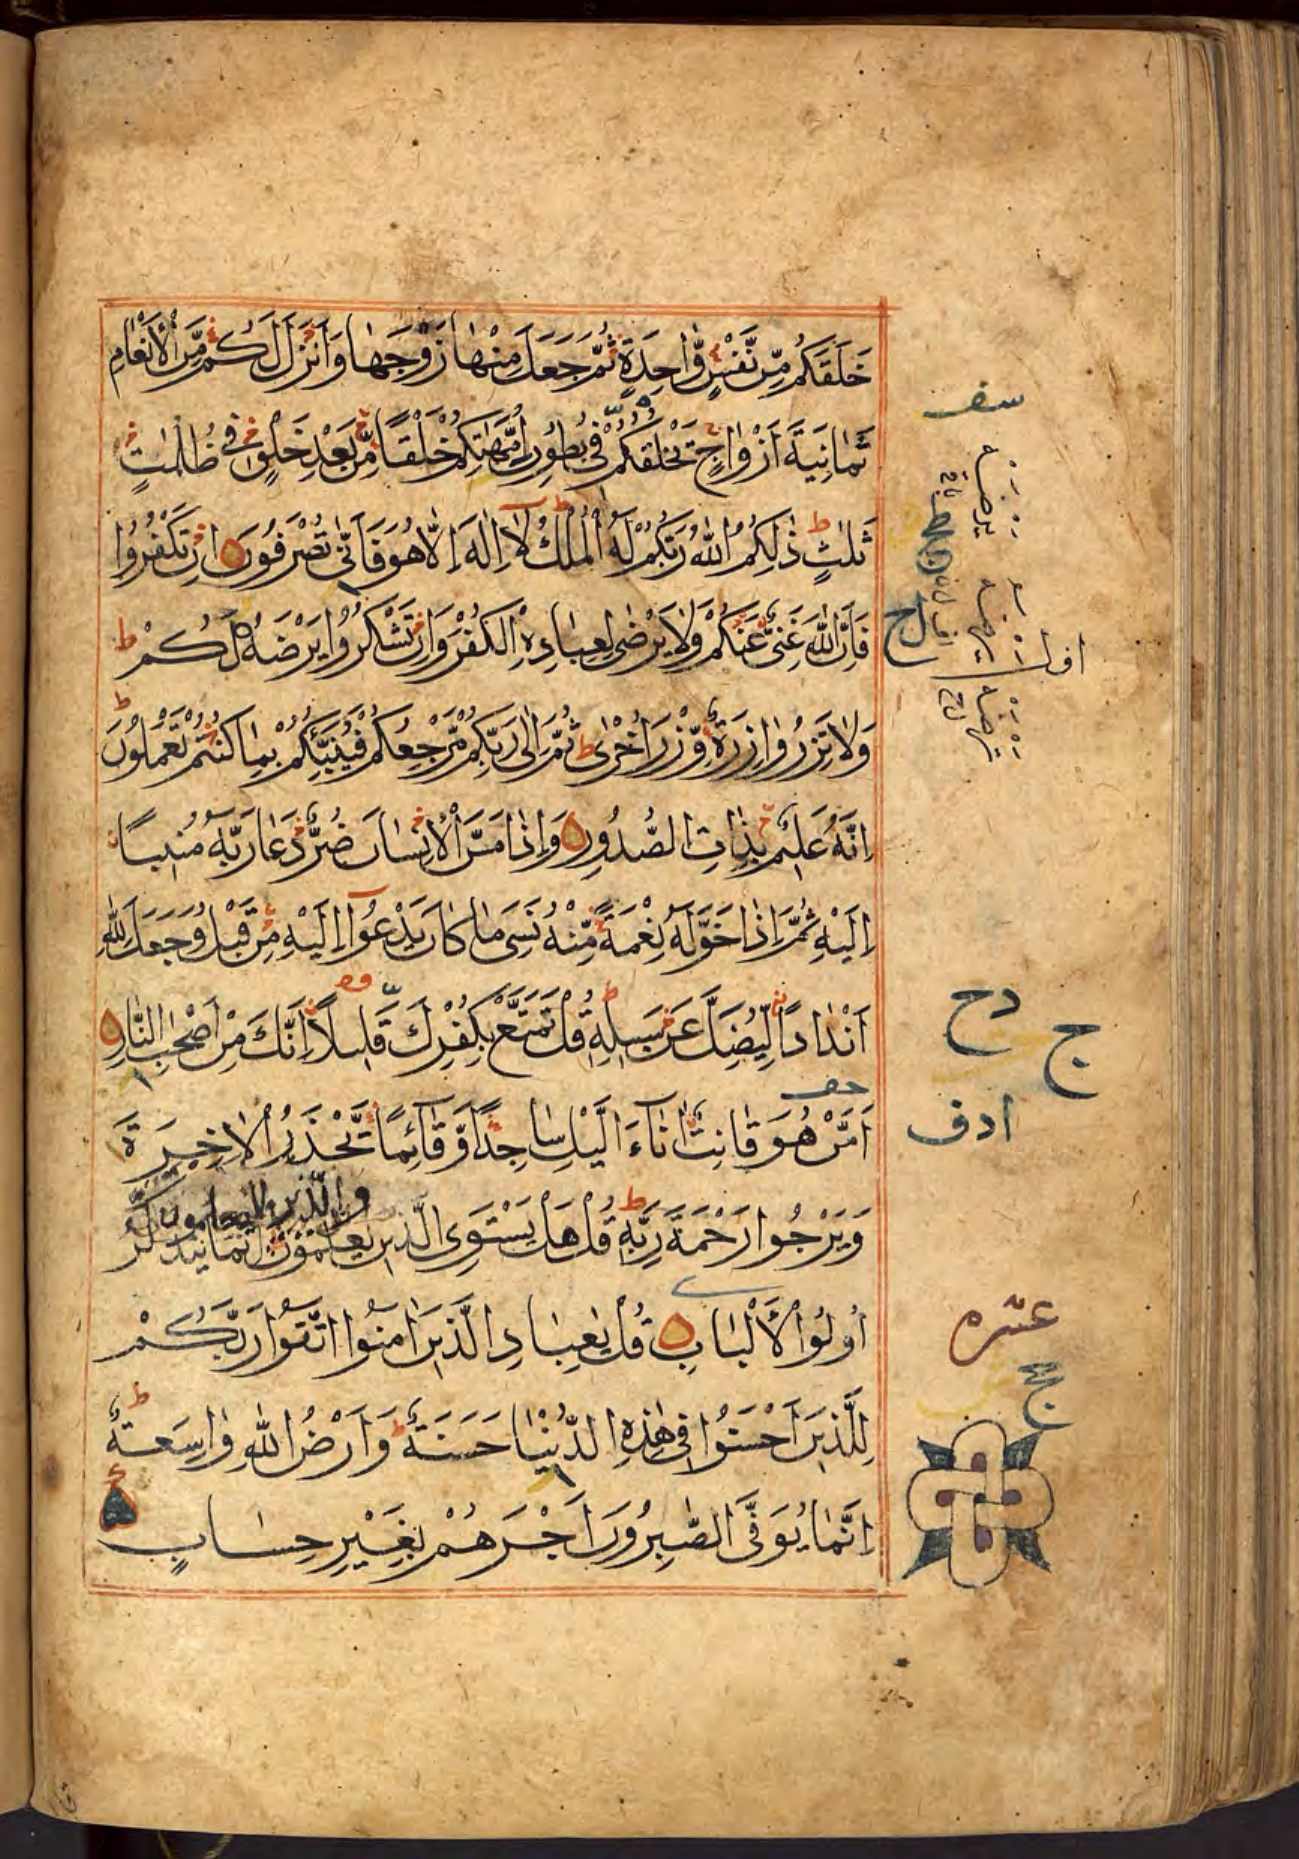 خَلَقَكُمْ مِّنْ نَّفْسٍ وَّاحِدَةٍ ثُمَّ جَعَلَ مِنْهَا زَوْجَهَا وَاَنْزَلَ لَكُمْ مِّنَ الْاَنْعَامِ
سف
ثَمَانِيَةَ اَزْوَاجٍ يَخْلُقُكُمْ فِي بُطُونِ اُمَّهٰتِكُمْ خَلْقًا مِّنْ بَعْدِ خَلْقٍ فِي ظُلُمٰتٍ
ثَلٰثٍ ذٰلِكُمُ اللّٰهُ رَبُّكُمْ لَهُ الْمُلْكُ لَا اِلٰهَ اِلَّا هُوَ فَاَنّٰى تُصْرَفُونَ اِنْ تَكْفُرُوا
فَاِنَّ اللّٰهَ غَنِيٌّ عَنْكُمْ وَلَا يَرْضٰى لِعِبَادِهِ الْكُفْرَ وَاِنْ تَشْكُرُوا يَرْضَهُ لَكُمْ ط
وَلَا تَزِرُ وَازِرَةٌ وِّزْرَ اُخْرٰى ط ثُمَّ اِلٰى رَبِّكُمْ مَّرْجِعُكُمْ فَيُنَبِّئُكُمْ بِمَا كُنْتُمْ تَعْمَلُونَ ط
اِنَّهُ عَلِيمٌ بِذَاتِ الصُّدُورِ وَاِذَا مَسَّ الْاِنْسَانَ ضُرٌّ دَعَا رَبَّهُ مُنِيبًا
اِلَيْهِ ثُمَّ اِذَا خَوَّلَهُ نِعْمَةً مِّنْهُ نَسِيَ مَا كَانَ يَدْعُوا اِلَيْهِ مِنْ قَبْلُ وَجَعَلَ لِلّٰهِ
اَنْدَادًا لِّيُضِلَّ عَنْ سَبِيلِهِ ط قُلْ تَمَتَّعْ بِكُفْرِكَ قَلِيلًا اِنَّكَ مِنْ اَصْحٰبِ النَّارِ
دح
ج
ادف
اَمَّنْ هُوَ قَانِتٌ اٰنَاءَ الَّيْلِ سَاجِدًا وَّقَائِمًا يَّحْذَرُ الْاٰخِرَةَ
والذين لا يعلمون
وَيَرْجُوا رَحْمَةَ رَبِّهِ ط قُلْ هَلْ يَسْتَوِى الَّذِينَ يَعْلَمُونَ اِنَّمَا يَتَذَكَّرُ
اُولُوا الْاَلْبَابِ قُلْ يٰعِبَادِ الَّذِينَ اٰمَنُوا اتَّقُوا رَبَّكُمْ
عشره
لِلَّذِينَ اَحْسَنُوا فِي هٰذِهِ الدُّنْيَا حَسَنَةٌ ط وَاَرْضُ اللّٰهِ وَاسِعَةٌ ط
اِنَّمَا يُوَفَّى الصّٰبِرُونَ اَجْرَهُمْ بِغَيْرِ حِسَابٍ